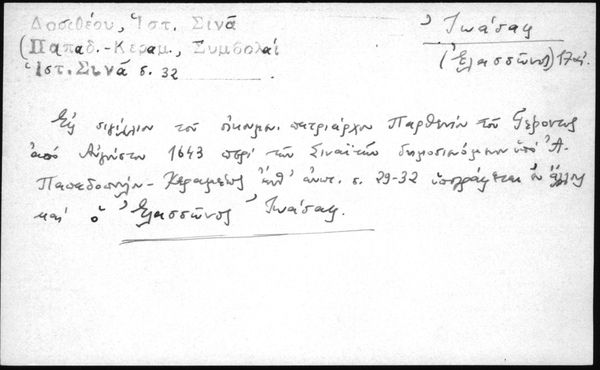 Δοσιθέου, Ἱστ. Σινᾶ
(Παπαδ.-Κεραμ., Συμβολαί
Ἱστ. Σινᾶ σ. 32
Ἰωάσαφ
(Ἐλασσῶνος) 17 αἰ.
Εἰς σιγίλλιον τοῦ οἰκουμ. πατριάρχου Παρθενίου τοῦ Γέροντος
ἀπό Αὐγούστου 1643 περί τῶν Σιναϊτῶν δημοσιευόμενον ὑπό Ἀ.
Παπαδοπούλου-Κεραμέως ἔνθ' ἀνωτ. σ. 29-32 ὑπογράφεται ἐν ἄλλοις
καί ὁ Ἐλασσῶνος Ἰωάσαφ.